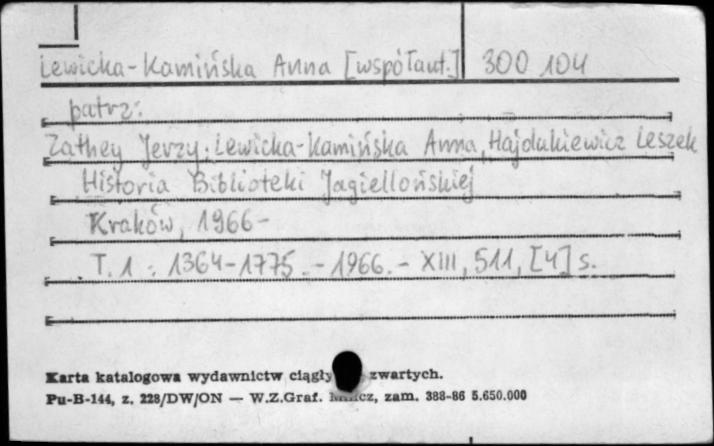 Lewicka-Kamińska Anna [współaut.] 300 104
patrz:
Zathey Jerzy, Lewicka-Kamińska Anna, Hajdukiewicz Leszek
Historia Biblioteki Jagiellońskiej
Kraków, 1966-
T. 1 : 1364-1775. - 1966. - XIII, 511, [4] s.
Karta katalogowa wydawnictw ciągły zwartych.
Pu-B-144, z. 228/DW/ON — W.Z.Graf. zam. 388-86 5.650.000